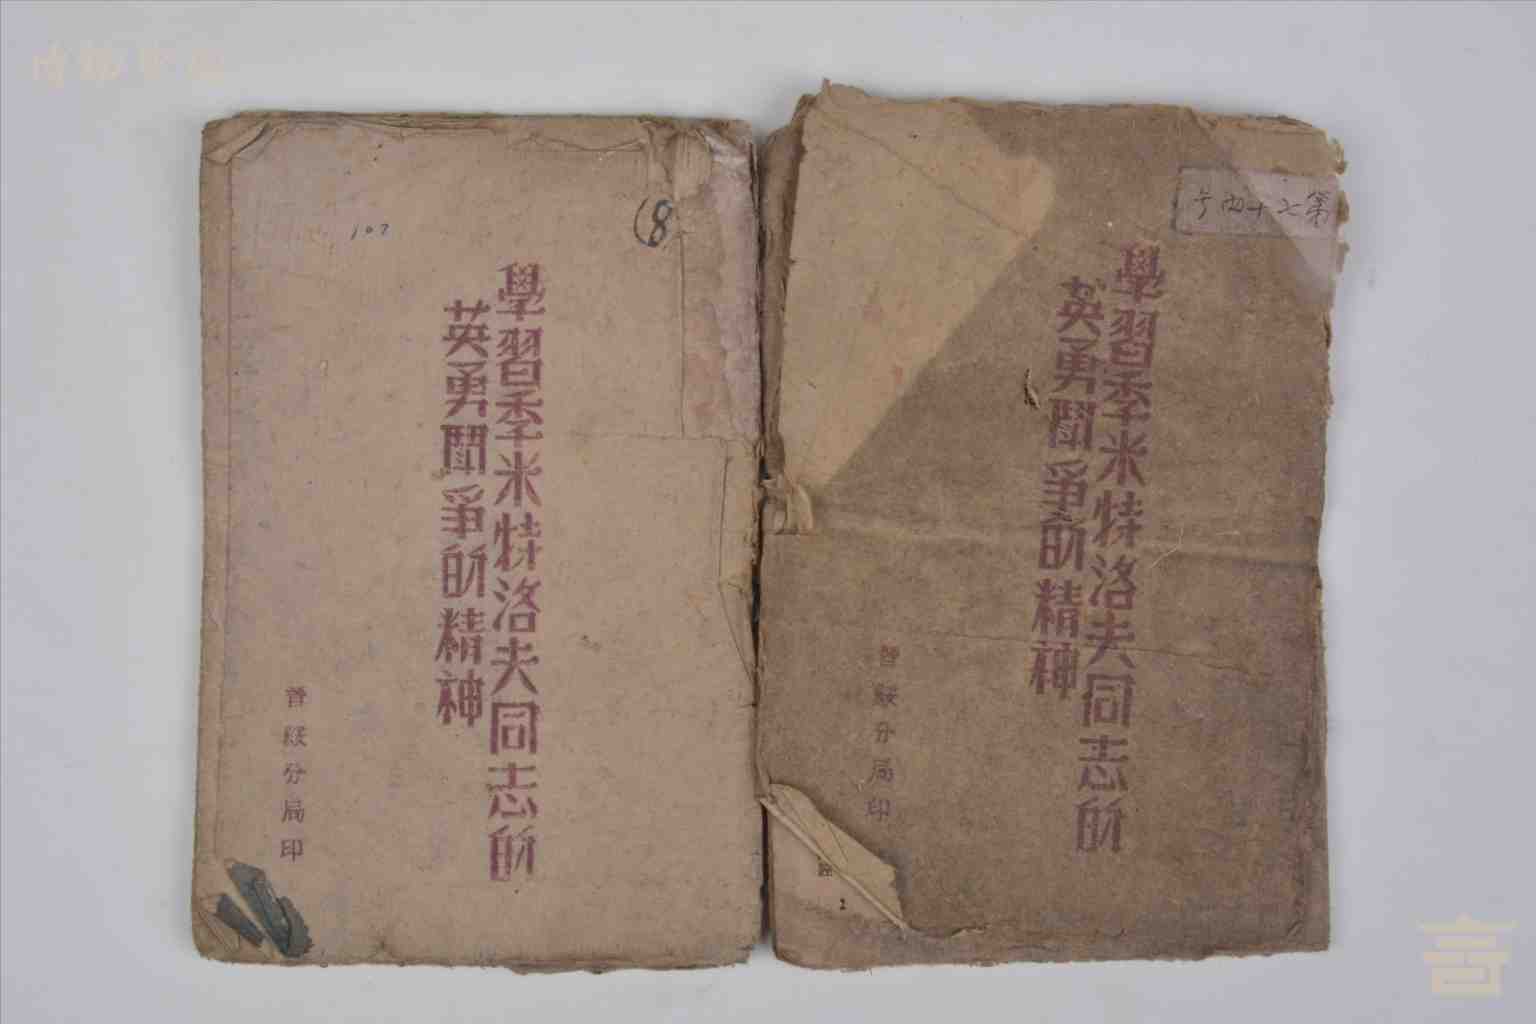 107
(8)
學習季米特洛夫同志的
英勇鬭爭的精神
晉綏分局印
第七十四号
學習季米特洛夫同志的
英勇鬭爭的精神
晉綏分局印
2